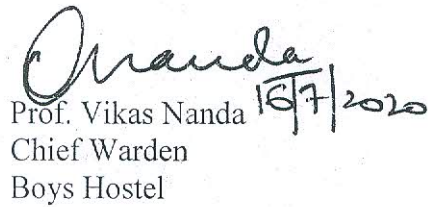 Nanda
Prof. Vikas Nanda 16/7/2020
Chief Warden
Boys Hostel